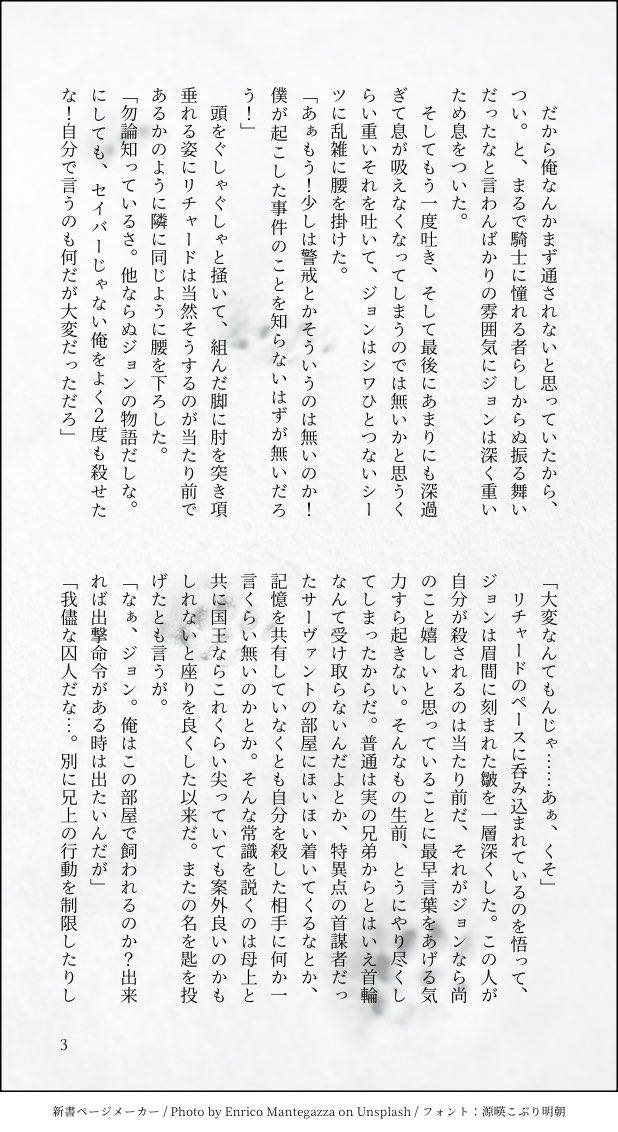 だから俺なんかまず通されないと思っていたから、
つい。と、まるで騎士に憧れる者らしからぬ振る舞い
だったなと言わんばかりの雰囲気にジョンは深く重い
ため息をついた。
そしてもう一度吐き、そして最後にあまりにも深過
ぎて息が吸えなくなってしまうのでは無いかと思うく
らい重いそれを吐いて、ジョンはシワひとつないシー
ツに乱雑に腰を掛けた。
「あぁもう！少しは警戒とかそういうのは無いのか！
僕が起こした事件のことを知らないはずが無いだろ
う！」
頭をぐしゃぐしゃと掻いて、組んだ脚に肘を突き項
垂れる姿にリチャードは当然そうするのが当たり前で
あるかのように隣に同じように腰を下ろした。
「勿論知っているさ。他ならぬジョンの物語だしな。
にしても、セイバーじゃない俺をよく2度も殺せた
な！自分で言うのも何だが大変だっただろ」
「大変なんてもんじゃ……あぁ、くそ」
リチャードのペースに呑み込まれているのを悟って、
ジョンは眉間に刻まれた皺を一層深くした。この人が
自分が殺されるのは当たり前だ、それがジョンなら尚
のこと嬉しいと思っていることに最早言葉をあげる気
力すら起きない。そんなもの生前、とうにやり尽くし
てしまったからだ。普通は実の兄弟からとはいえ首輪
なんて受け取らないんだよとか、特異点の首謀者だっ
たサーヴァントの部屋にほいほい着いてくるなとか、
記憶を共有していなくとも自分を殺した相手に何か一
言くらい無いのかとか。そんな常識を説くのは母上と
共に国王ならこれくらい尖っていても案外良いのかも
しれないと座りを良くした以来だ。またの名を匙を投
げたとも言うが。
「なぁ、ジョン。俺はこの部屋で飼われるのか？出来
れば出撃命令がある時は出たいんだが」
「我儘な囚人だな…。別に兄上の行動を制限したりし
3
新書ページメーカー / Photo by Enrico Mantegazza on Unsplash / フォント：源暎こぶり明朝